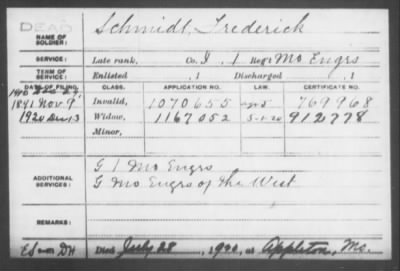 DEAD
Schmidt, Frederick
NAME OF SOLDIER:
SERVICE: Late rank, Co. I, 1 Reg't Mo Engrs
TERM OF SERVICE: Enlisted , 1 Discharged , 1
DATE OF FILING. CLASS. APPLICATION NO. LAW. CERTIFICATE NO.
1891 Nov. 9 Invalid, 1070655 769968
1920 Dec 13 Widow, 1167052 5-1-20 912778
Minor,
ADDITIONAL SERVICES:
G 1 Mo Engrs
G Mo Engrs of the West
REMARKS:
Died July 28, 1920, at Appleton, Mo.